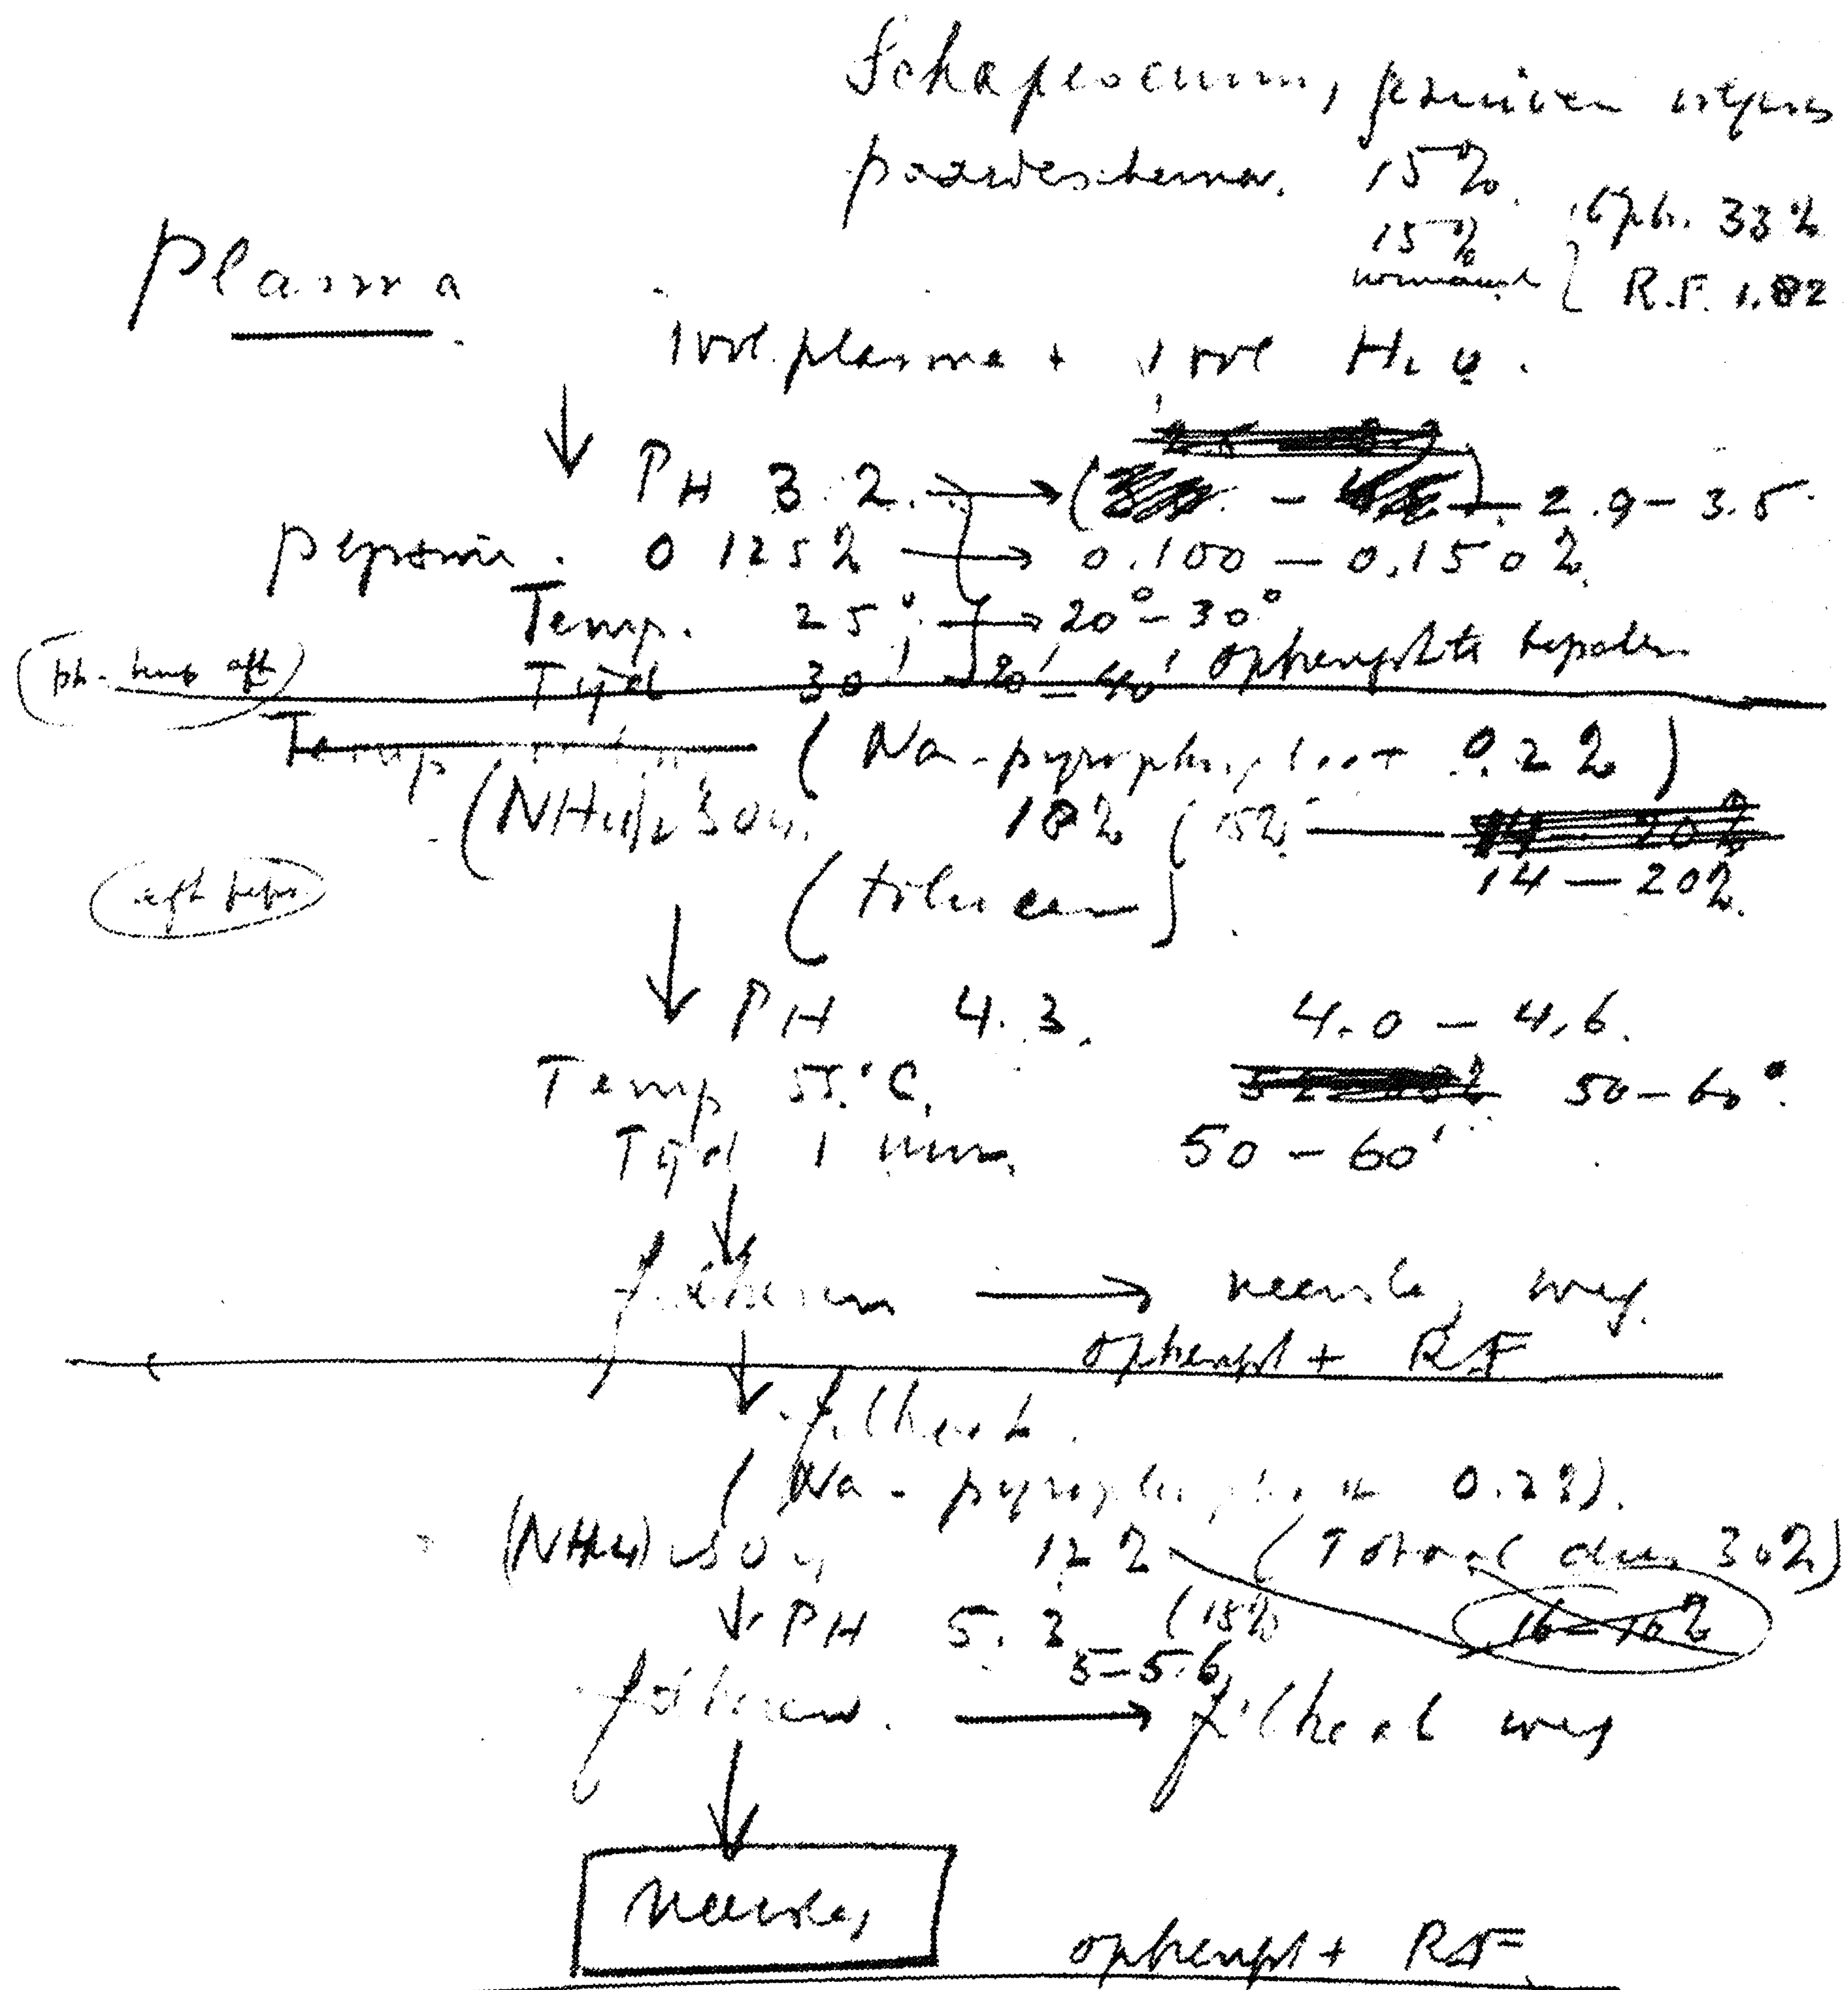 Schapeserum, precies volgens
paardeschema. 15%.
15% opbr. 33%
R.F. 1.82
Plasma
1 vol. plasma + 1 vol H2O.
PH 3.2. → 2.9 – 3.5
pepsine. 0.125% → 0.100 – 0.150%
Temp. 25° → 20° – 30°
Tijd 30' → 20' – 40' opbrengst te bepalen
Temp
(Na-pyrophosphaat 0.2%)
(NH4)2SO4. 18% (15% — 14 - 20%
14 – 20%.
(tolueen)
PH 4.3. 4.0 – 4.6.
Temp 55°C. 50 – 60°.
Tijd 1 uur. 50 – 60'
filtreren → neerslag weg.
opbrengst + RF
filtraat.
(Na-pyrophosphaat 0.2%).
(NH4)2SO4 12% (Totaal dus 30%)
PH 5.3 (15%
5 – 5.6
filtreren. → filtraat weg
neerslag
opbrengst + RF.